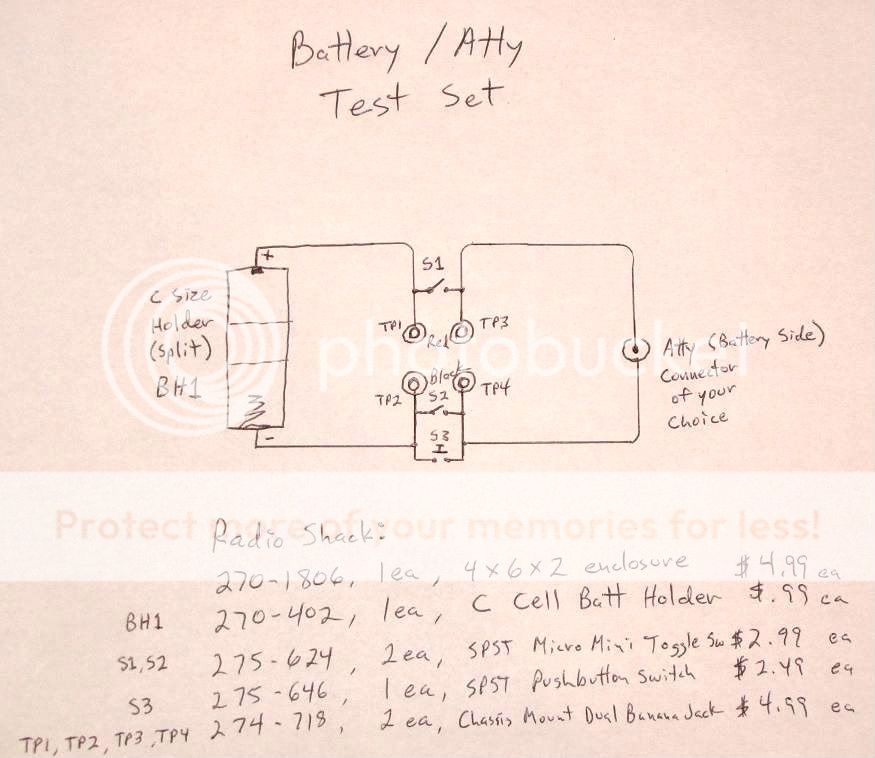 Battery / Atty
Test Set
+
S1
C Size
Holder
(Split)
BH1
TP1
TP3
Red
Black
TP2
S2
TP4
S3
-
Atty (Battery Side)
Connector
of your
Choice
photobucket
Protect more of your memories for less!
Radio Shack:
270-1806, 1ea, 4x6x2 enclosure $4.99 ea
BH1 270-402, 1ea, C Cell Batt Holder $.99 ea
S1,S2 275-624, 2ea, SPST Micro Mini Toggle Sw $2.99 ea
S3 275-646, 1 ea, SPST Pushbutton Switch $2.49 ea
TP1, TP2, TP3, TP4 274-718, 2 ea, Chassis Mount Dual Banana Jack $4.99 ea